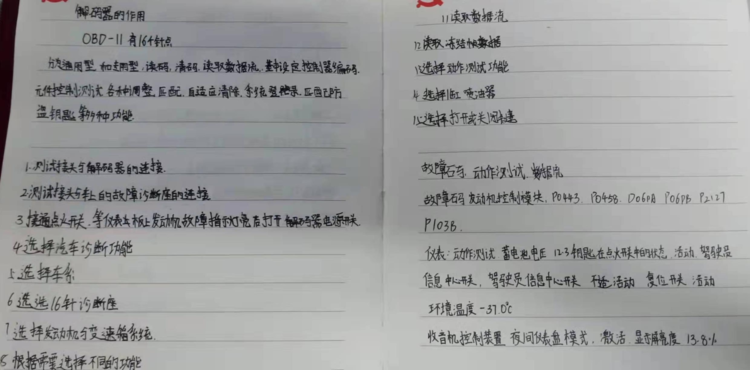 解码器的作用
OBD-11 有16针点
分通用型和专用型,读码,清码,读取数据流,重新设定控制器编码,
元件控制测试 各系调整,匹配,自适应清除,系统登录,匹配防
盗钥匙等多种功能
1.测试接头与解码器的连接
2.测试接头与车上的故障诊断座的连接
3.接通点火开关,等仪表板上发动机故障指示灯亮后打开解码器电源开关
4.选择汽车诊断功能
5.选择车系
6.选选16针诊断座
7.选择发动机与变速箱系统
8.根据需要选择不同的功能
11读取数据流
12读取冻结帧数据
13选择动作测试功能
4.选择缸喷油器
15选择打开或关闭
故障码 动作测试 数据流
故障码 发动机控制模块,P0443 P0458 P2127
P103B.
仪表:动作测试 蓄电池电压 12.3 钥匙在点火开关中的状态,活动,驾驶员
信息中心开关,驾驶员信息中心开关 不活动 复位开关 活动
环境温度 -37.0℃
收音机控制装置 夜间仪表盘模式,激活 显示屏亮度 13.8%